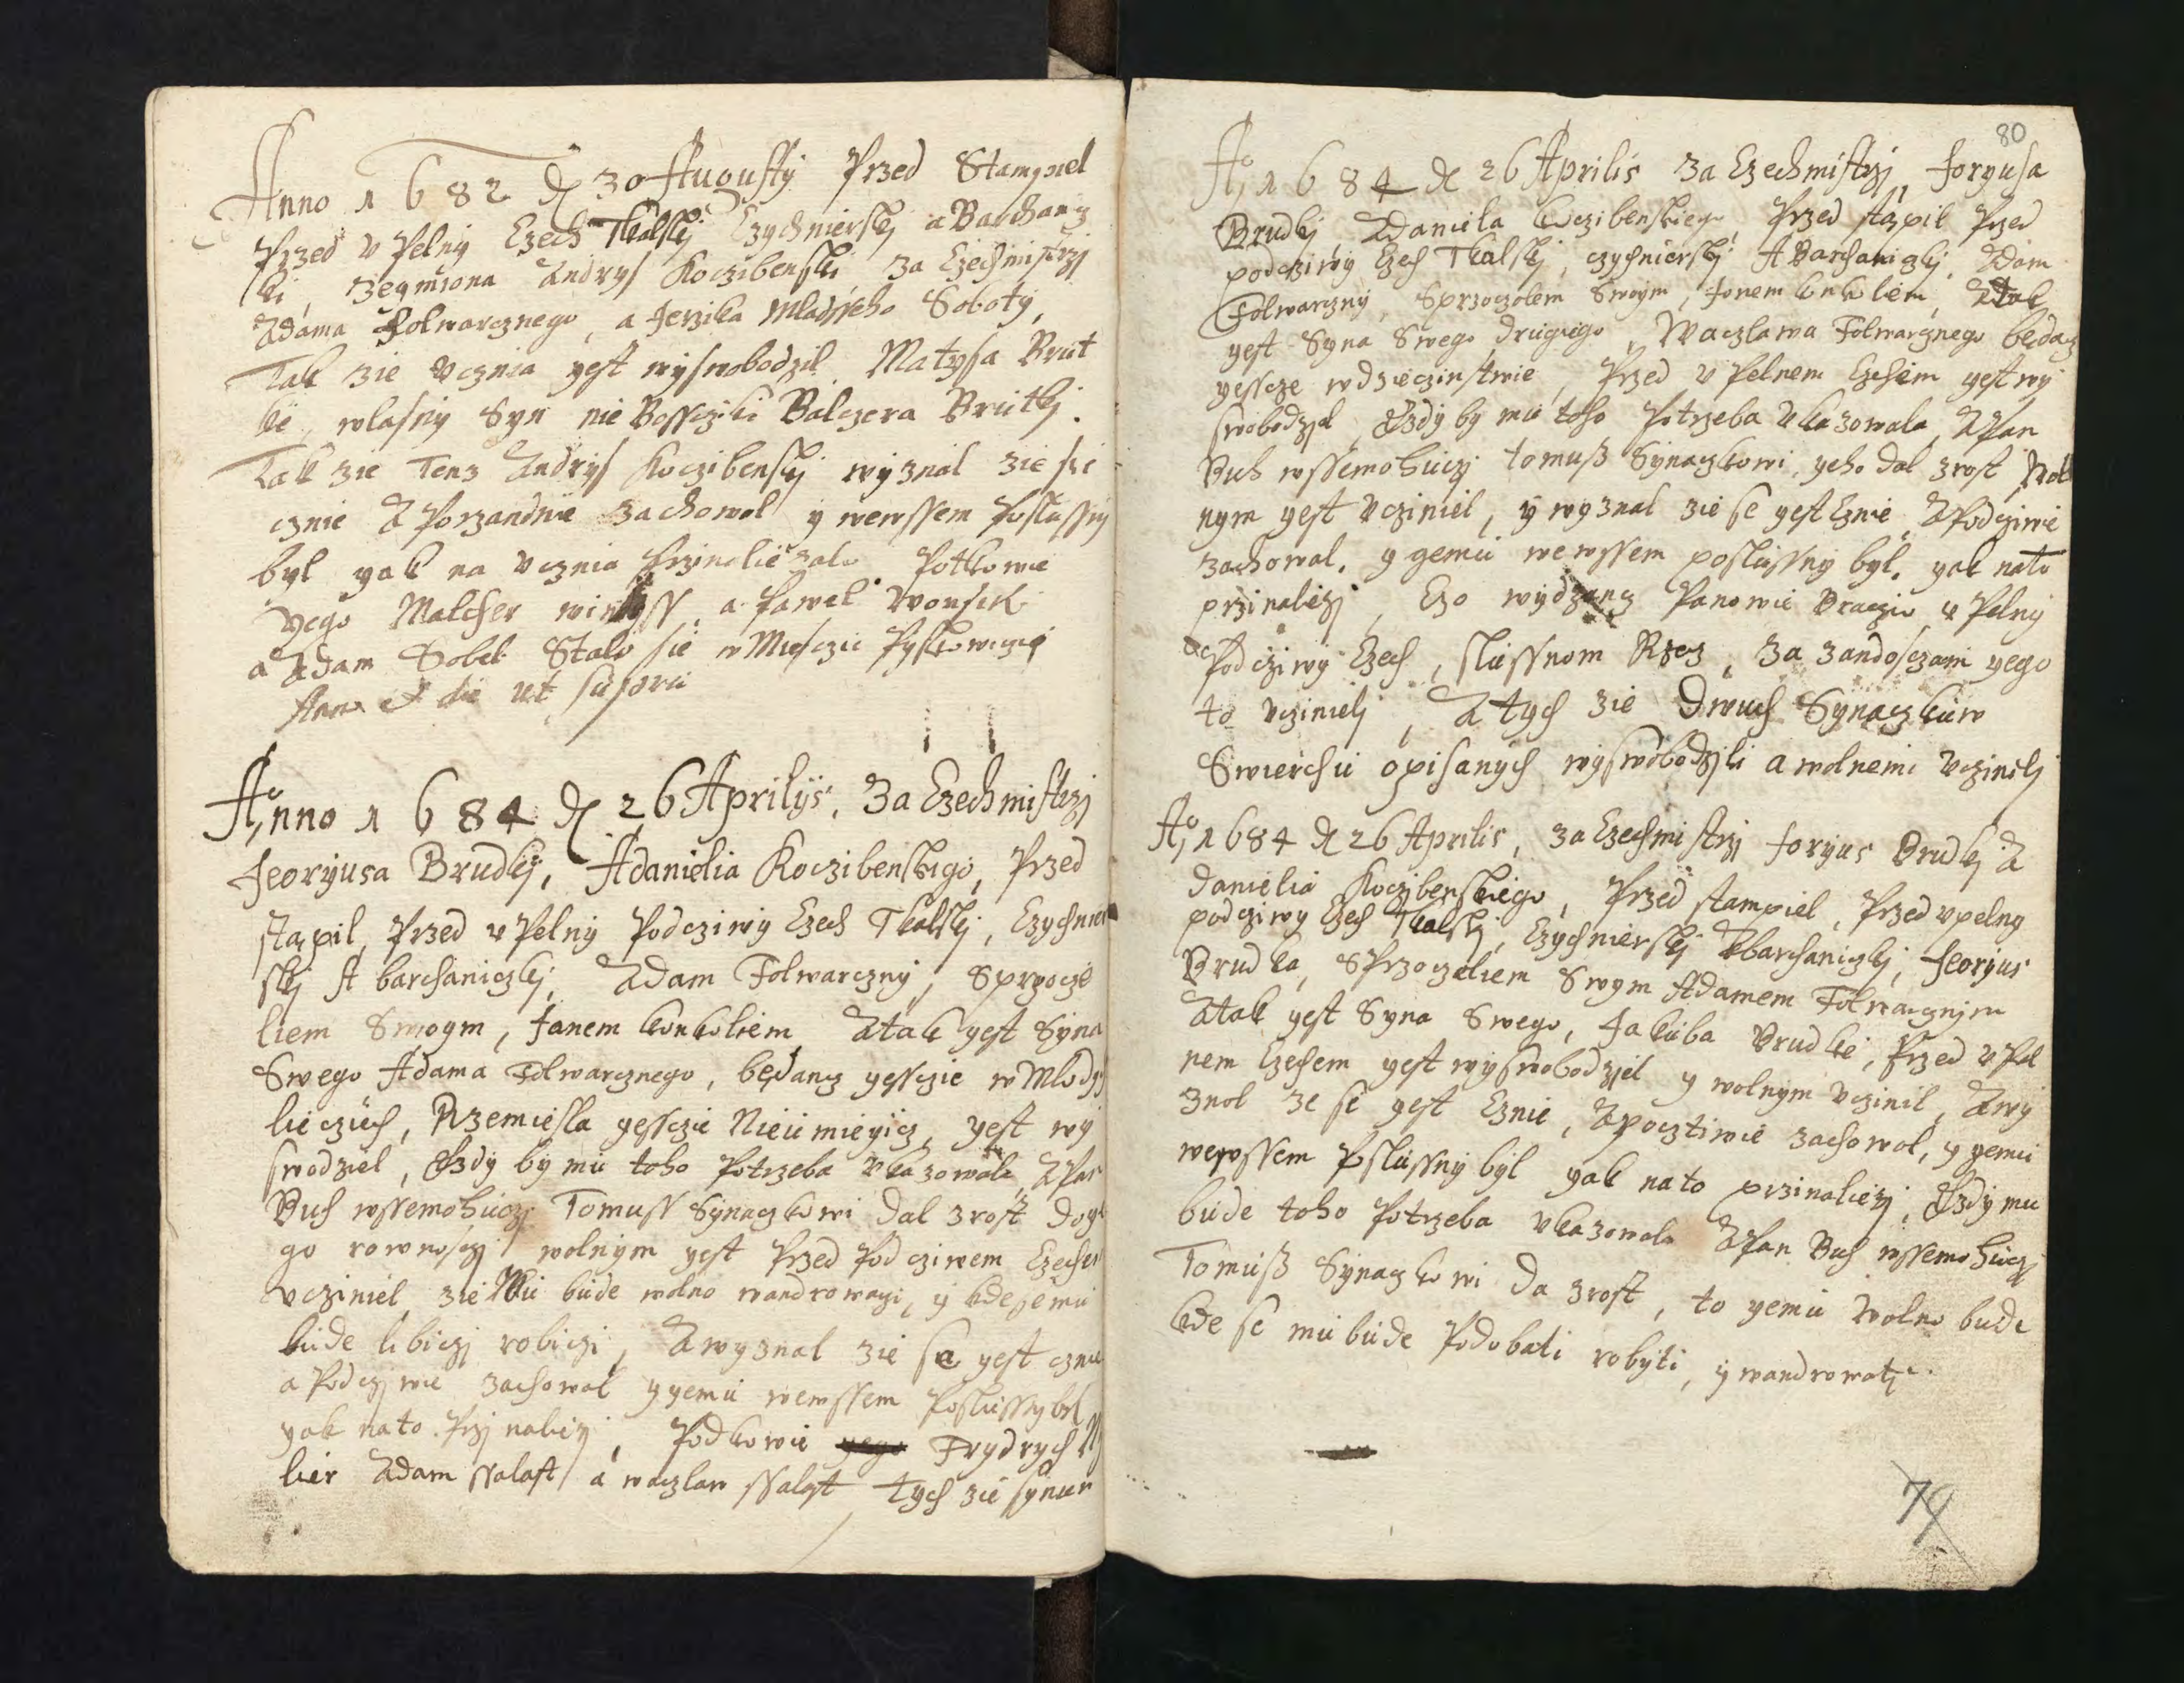 Anno 1682 d 30 Augusty Przed Stampiel
Przed v Pelny Czech Tkalskj Czychnierskj a Barchanicz
ki, zeymiona Andrys Koczibenski za Czechmistrzj
Adama Folwarcznego, a Jerzika Mladsseho Soboty,
Tak zie vcznia gest wyswobodzil Matyssa Brut
ke, wlasny Syn nie Bossczyki Balczera Brutkj.
Tak zie Tenz Andrys Koczibenskj wyznal zie sie
cznie A Porzandnie zachowol y wewssem Poslussny
byl yak na vcznia Przinaliezalo Potkowie
yego Malcher a Pawel Wonsek
a Adam Sobek Stalo sie w Miesczie Pyskowiczych
Anno et die ut supra
Anno 1684 d 26 Aprilys, Za Czechmistrzj
Jeoryusa Brudkj, A danielia Koczibenskigo, Przed
stąpil, Przed v Pelny Podcziwy Czech Tkalskj, Czychnier
skj A barchaniczkj, Adam Folwarczny, Sprzoczie
liem Swoym, Janem konkoliem Atak gest Syna
Swego Adama Folwarcznego, będancz gessczie w Mlodych
liecziech, Rzemiesla gessczie Nieumieyicz, gest wy
swodziel, Gdzby by mu toho Potrzeba vkazowala APan
Buh wssemohuczj Tomuss Synaczkowi dal zrost doye
go rownosczj wolnym gest Przed Podcziwem Czechem
vcziniel, zie Mu bude wolno wandrowaczi, y kde jemu
bude libiczj robiczi, A wyznal zie se gest cznie
a Podczjwie zachowal y yemu wewssem Poslussny bel
yak nato Przjnaliezj, Podkowie Frydrych
lier Adam ssalast a waczlaw ssalast tych zie synuw
80
Ao 1684 d 26 Aprilis Za Czechmistrzj, Joryusa
Brudkj A Daniela koczibenskiego, Przed stąpil Przed
podcziwy Czech Tkalskj, czychnierskj A Barchaniczkj, Adam
Folwarczny, Sprzoczolem Swoym, Janem konkoliem, Atak
gest Syna Swego drugiego, Waczlawa Folwarcznego będacz
gesscze wdzieczinstwie, Przed v Pelnem Czechem gest wy
swobodzjel, Gdzby by mu toho Potrzeba vkazowala, APan
Buh wssemohuczj tomuß Synaczkowi, yeho dal zrost, Wol
nym gest vcziniel, y wyznal zie se gest Cznie APodcziwie
zachowal. y gemu wewssem poslussny byl. yak nato
przinaliezj, Czo wydzancz Panowie Braczia v Pelny
Podcziwy Czech, slussnom Rzecz, Za zandosczami yego
to vczinielj, A tych zie Dwuch Synaczkuw
Swierchu opisanych wyswobodzjli a wolnemi vczinilj
Ao 1684 d 26 Aprilis, za Czechmistrzj Joryus Brudkj A
Danielia Koczibenskiego, Przed stampiel, Przed vpelny
podcziwy Czech Tkalskj, Czychnierskj A barchaniczkj, Jeoryus
Brudka, SPrzoczeliem Swym Adamem Folwarcznjm
Atak gest Syna Swego, Jakuba Brudke, Przed vPel
nem Czechem gest wyswobodzjel y wolnym vczinil, Awy
znol ze se gest Cznie, Apocztiwie zachowol, y gemu
wewssem Poslussny byl yak nato przinaliezj, Gdzby mu
bude toho Potrzeba vkazowala APan Buh wssemohuczj
Tomuß Synaczkowi Da zrost, to yemu Wolno bude
kde se mu bude Podobati robyti, y wandrowatj
79